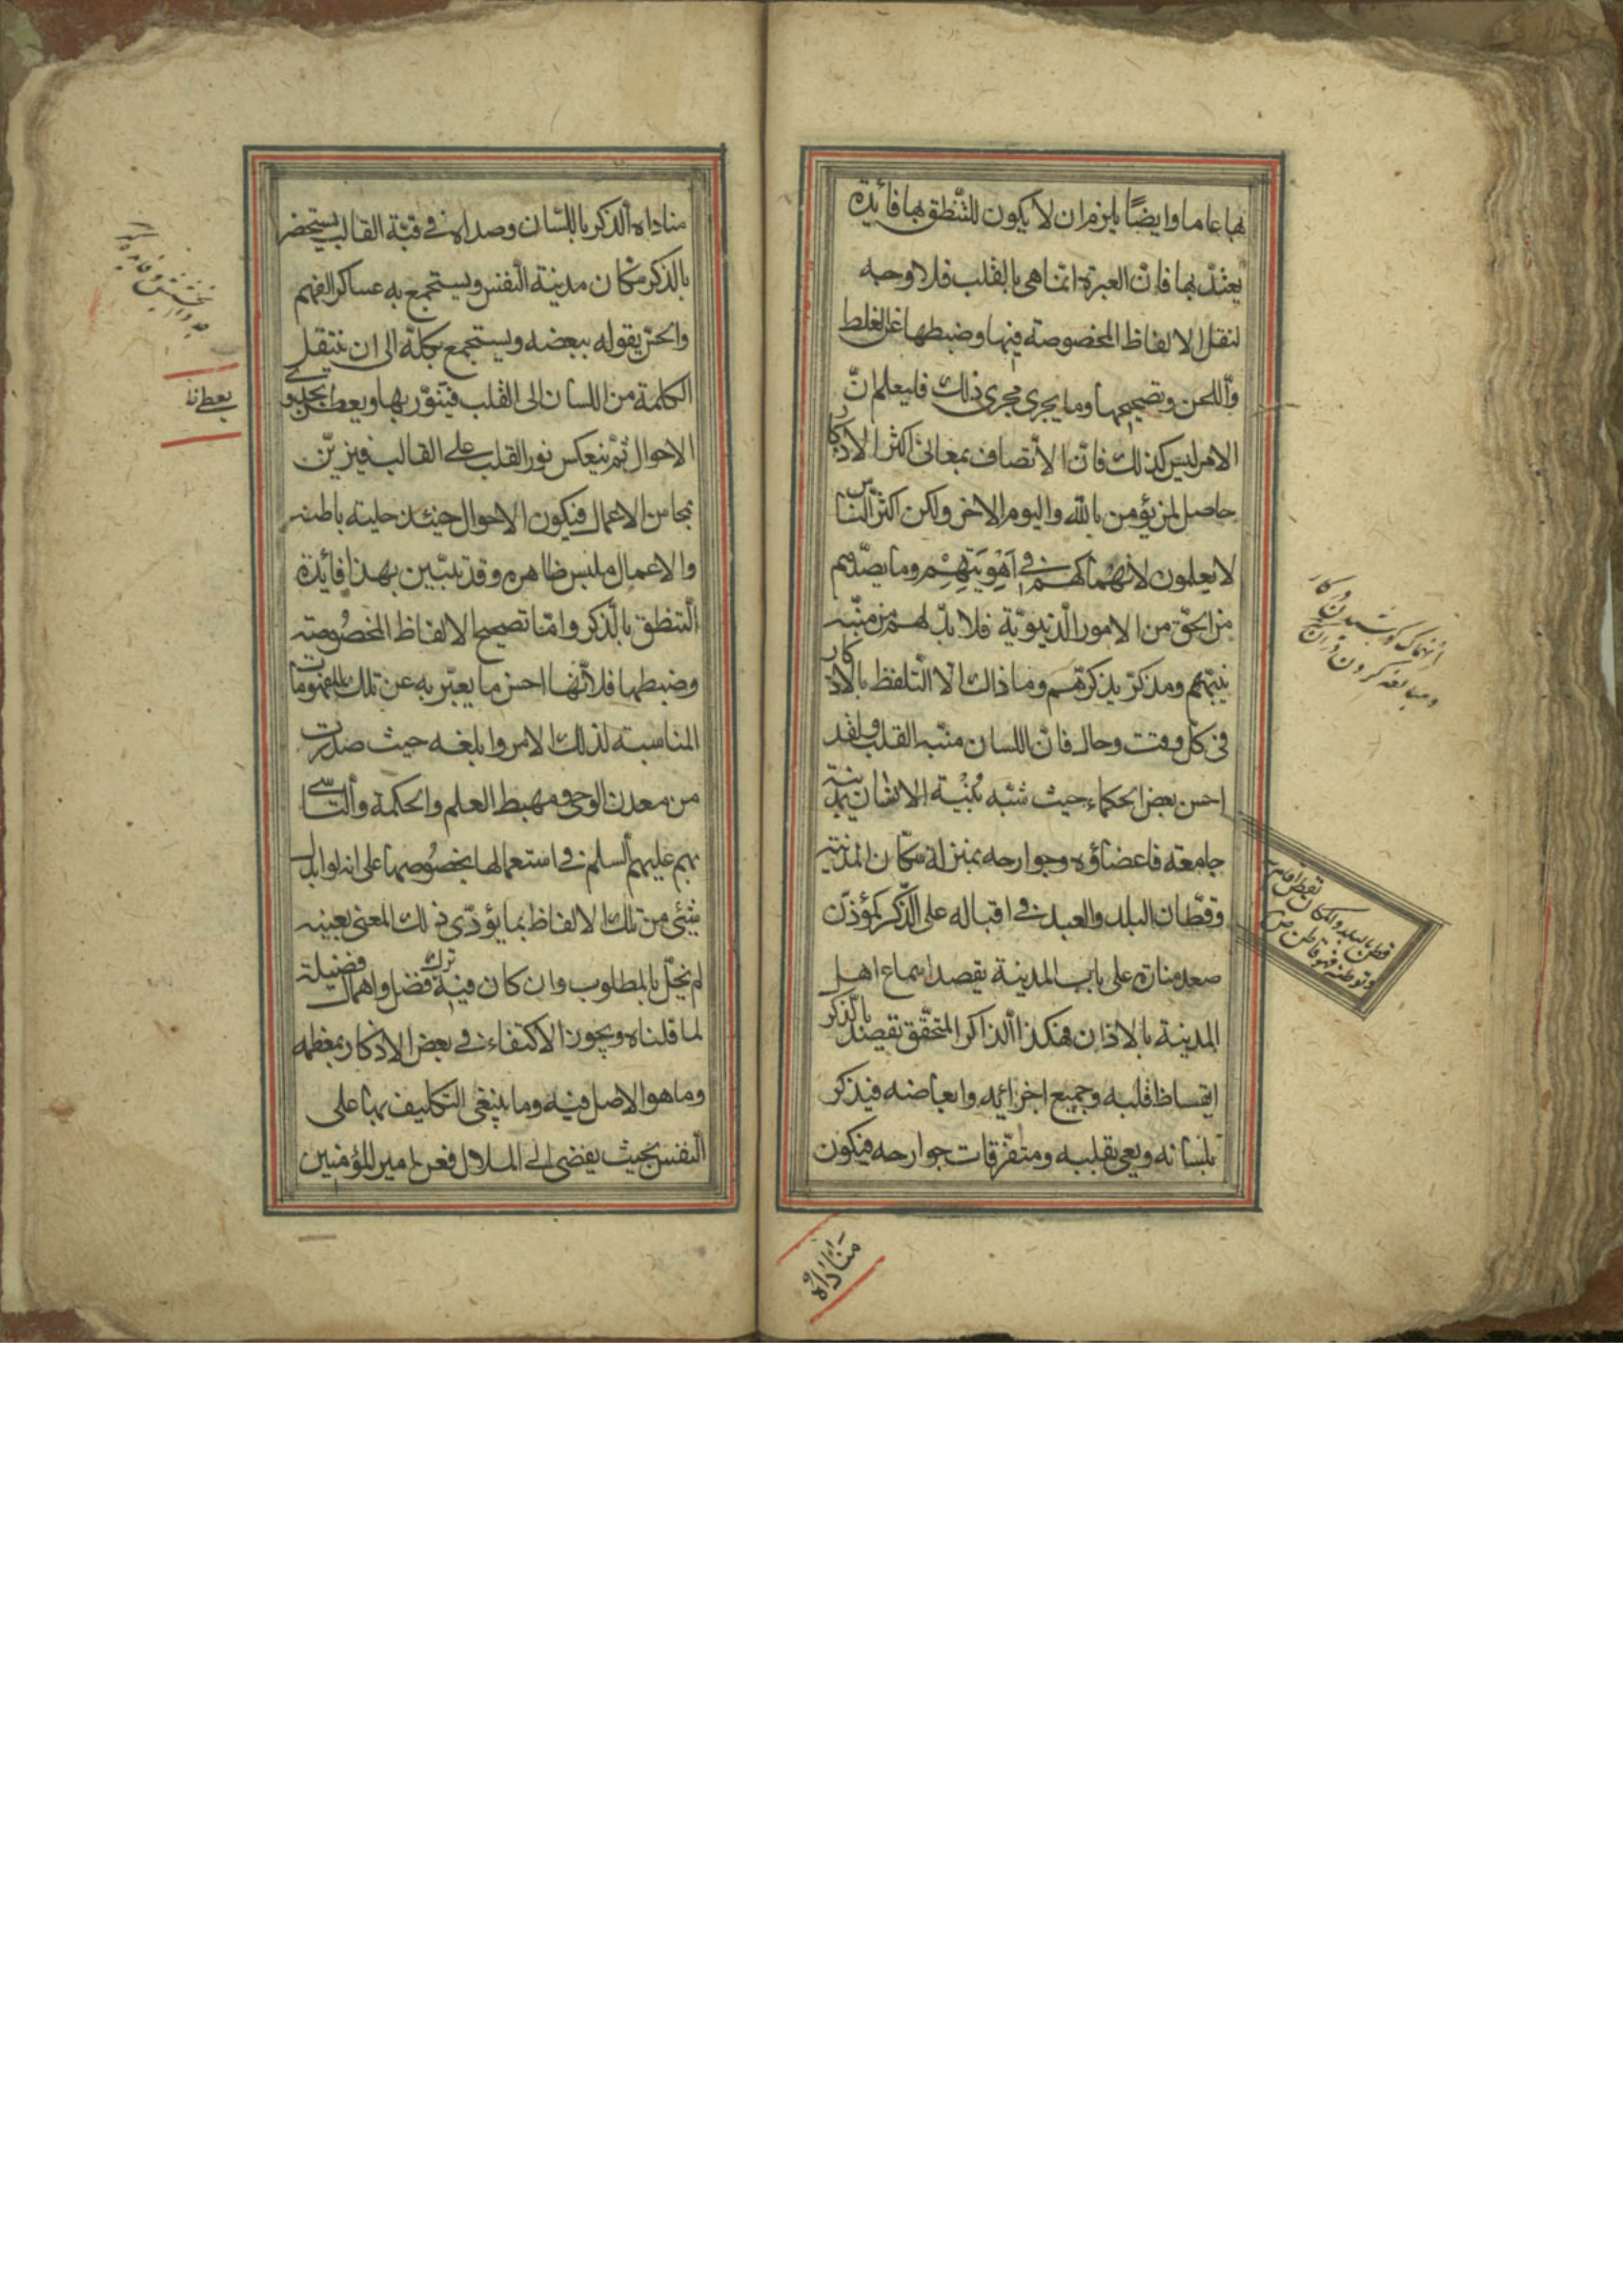 بها عاما وايضًا يلزم ان لا يكون للتّنطّق بها فائدة
يعتدّ بها فانّ العبرة انّما هى بالقلب فلا وجه
لنقل الالفاظ المخصوصة فيها وضبطها عن الغلط
واللحن وتصحيحها وما يجرى مجرى ذلك فليعلم انّ
الامر ليس كذلك فانّ الاتّصاف بمعانى اكثر الاذكار
حاصل لمن يؤمن بالله واليوم الاخر ولكن اكثر النّاس
لا يعلمون لانهماكهم فى اَهْوِيَتِهِمْ وما يصدّهم
من الحق من الامور الدّنيويّة فلا بدّ لهم من منبّه
ينبّههم ومذكرّ يذكرّهم وما ذاك الّا التّلفظ بالاذكار
فى كل وقت وحال فانّ اللسان منبّه القلب ولقد
احسن بعض الحكماء حيث شبّه بُنْيَة الانسان بمدينة
جامعة فاعضاؤه وجوارحه بمنزلة سكّان المدينة
وقطّان البلد والعبد فى اقباله على الذّكر كمؤذّن
صعد منارة على باب المدينة يقصد اسماع اهل
المدينة بالاذان فهكذا الذاكر المتحقّق يقصد بالذكر
ايقساظ قلبه وجميع اجزائه وابعاضه فيذكر
بلسانه ويعى بقلبه ومتفرّقات جوارحه فيكون
مناداة
انهماك كوشيدن در كار
ومبالغه كردن دران
قطن بالبلد والمكان يقطن اقام به
وتوطنه فهو قاطن ص
مناداة الذكر باللسان وصداه فى قبّة القالب يستحضر
بالذكر سكان مدينة النفس ويستجمع به عساكر الفهم
والحزّ يقوله ببعضه ويستجمع بكلّه الى ان ينتقل
الكلمة من اللسان الى القلب فيتنوّر بها ويعطى بجدوى
الاحوال ثمّ ينعكس نور القلب على القالب فيزيّن
بمحاسن الاعمال فيكون الاحوال حينئذ حلية باطنه
والاعمال ملبس ظاهره وقد تبّين بهذا فائدة
التنطق بالذّكر وامّا تصحيح الالفاظ المخصُوصة
وضبطها فلانّها احسن ما يعبّر به عن تلك المفهومات
المناسبة لذلك الامر وابلغه حيث صدرت
من معدن الوحى ومهبط العلم والحكمة والتاسّى
بهم عليهم السلم فى استعمالها بخصُوصها على انه لو ابدل
شئى من تلك الالفاظ بما يؤدّى ذلك المعنى بعينه
لم يخلّ بالمطلوب وان كان فيه ترك فضل واهمال فضيلة
لما قلناه ويجوز الاكتفاء فى بعض الاذكار بمعظمه
وما هو الاصل فيه وما ينبغى التكليف بها على
النفس بحيث يفضى الى الملال فعن امير المؤمنين
يعطى نا